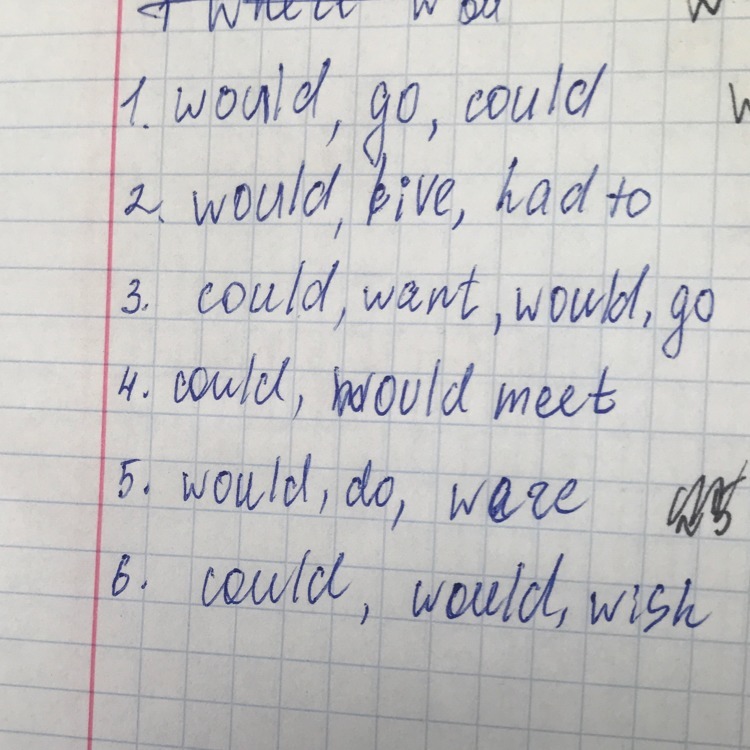 1. would, go, could
2. would, live, had to
3. could, want, would, go
4. could, would meet
5. would, do, ware
6. could, would, wish